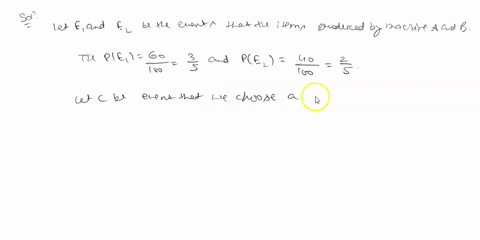 Sol?
Let E₁ and E₂ be the events that the items produced by machine A and B.
The P(E₁) = 60/100 = 3/5 and P(E₂) = 40/100 = 2/5.
Let C be event that we choose a